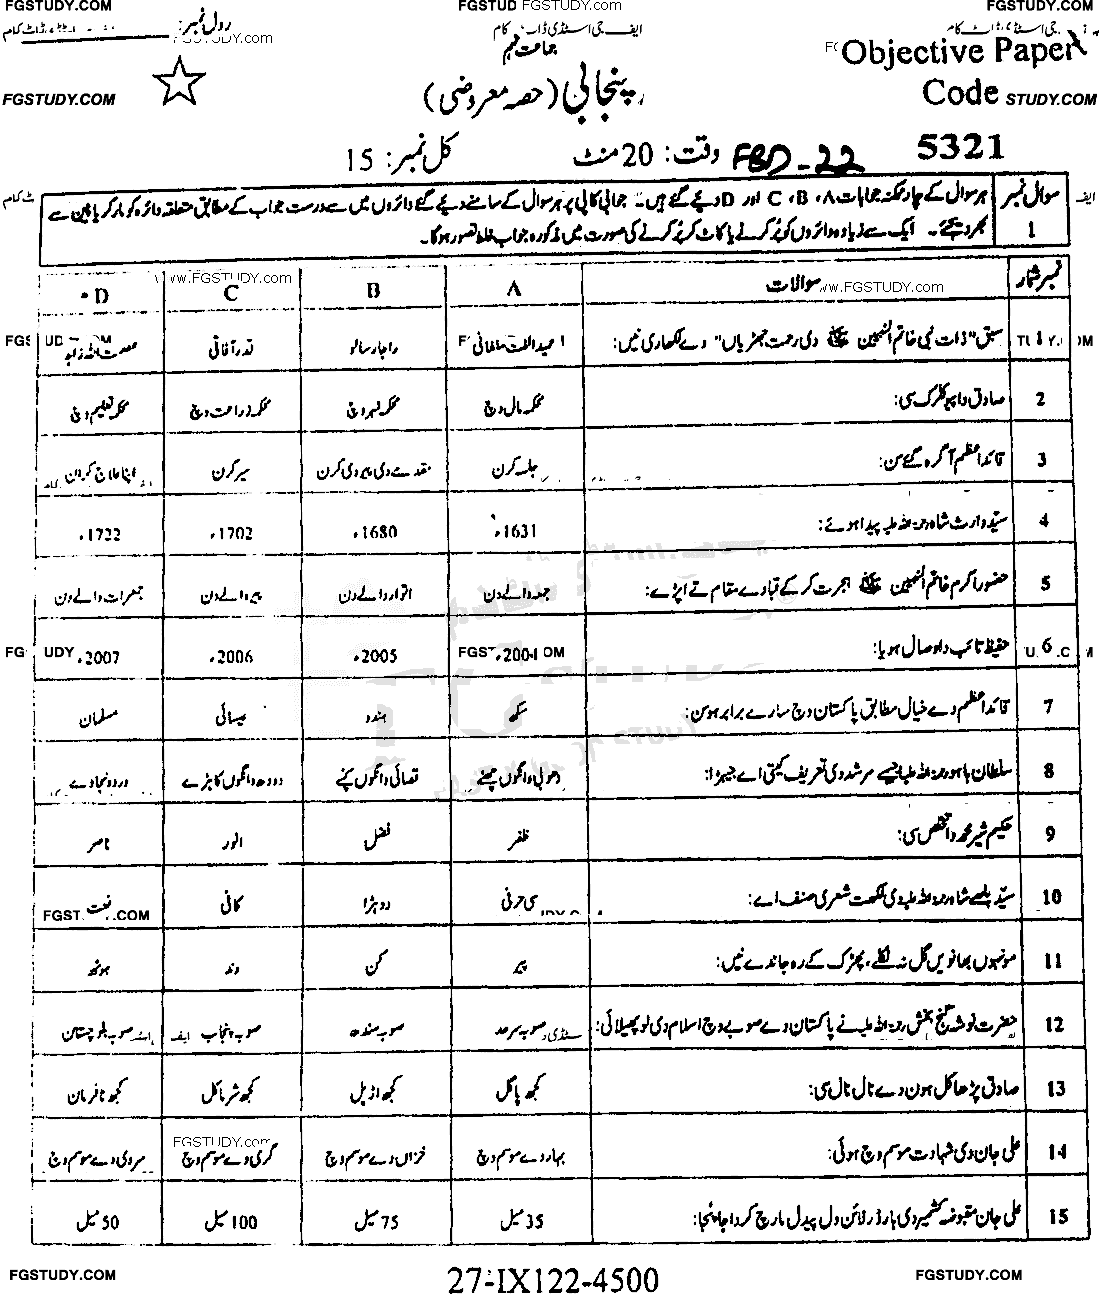 FGSTUDY.COM FGSTUD FGSTUDY.COM FGSTUDY.COM
رول نمبر: ایف جی اسٹڈی ڈاٹ کام
جماعت نہم
Objective Paper
Code
5321
FGSTUDY.COM STUDY.COM
پنجابی (حصہ معروضی)
وقت: 20 منٹ کل نمبر: 15
FBD-22
سوال نمبر 1
ہر سوال کے چار ممکنہ جوابات A، B، C اور D دیے گئے ہیں۔ جوابی کاپی پر ہر سوال کے سامنے دیے گئے دائروں میں سے درست جواب کے مطابق متعلقہ دائرہ کو مارکر یا پین سے
بھر دیجئے۔ ایک سے زیادہ دائروں کو پُر کرنے یا کاٹ کر پُر کرنے کی صورت میں مذکورہ جواب غلط تصور ہوگا۔
نمبر شمار سوالات A B C D
ww.FGSTUDY.com ww.FGSTUDY.com
1 سبق "ذات نبی خاتم النبیین ﷺ دی رحمت جھڑیاں" دے لکھاری نیں: عبداللطیف راجا رسالو قدر آفاقی عصمت اللہ زاہد
2 صادق دا پیو کلرک سی: محکمہ مال وچ محکمہ نہر وچ محکمہ زراعت وچ محکمہ تعلیم وچ
3 قائداعظم آگرہ گئے سن: جلسہ کرن مقدمے دی پیروی کرن سیر کرن اپنا علاج کران
4 سیّد وارث شاہ رحمۃ اللہ علیہ پیدا ہوئے: 1631ء 1680ء 1702ء 1722ء
5 حضور اکرم خاتم النبیین ﷺ ہجرت کر کے قبا دے مقام تے اپڑے: جمعہ والے دن اتوار والے دن پیر والے دن جمعرات والے دن
6 حفیظ تائب دا وصال ہویا: 2004ء 2005ء 2006ء 2007ء
7 قائداعظم دے خیال مطابق پاکستان وچ سارے برابر ہوسن: سکھ ہندو عیسائی مسلمان
8 سلطان باہو رحمۃ اللہ علیہ ایسے مرشد دی تعریف کیتی اے جیہڑا: دھوبی وانگوں چھٹے قصائی وانگوں کٹے دودھ وانگوں کاہڑے درد ونجاوے
9 حکیم شیر محمد دا تخلص سی: ظفر فضل انور ناصر
10 سیّد بلھے شاہ رحمۃ اللہ علیہ دی لکھت شعری صنف اے: سی حرفی دوہڑا کافی نعت
11 مونہوں بھانویں گل نہ نکلے، پھڑک کے رہ جاندے نیں: پیر کن دند ہونٹھ
12 حضرت نوشہ گنج بخش رحمۃ اللہ علیہ نے پاکستان دے صوبے وچ اسلام دی لو پھیلائی: صوبہ سرحد صوبہ سندھ صوبہ پنجاب صوبہ بلوچستان
13 صادق پڑھاکل ہون دے نال نال سی: کجھ پاگل کجھ اڑیل کجھ شرماکل کجھ نافرمان
14 علی جان دی شہادت موسم وچ ہوئی: بہار دے موسم وچ خزاں دے موسم وچ گرمی دے موسم وچ سردی دے موسم وچ
15 علی جان مقبوضہ کشمیر دی بارڈر لائن ول پیدل مارچ کردا جا پہنچا: 35 میل 75 میل 100 میل 50 میل
FGSTUDY.COM 27-IX122-4500 FGSTUDY.COM